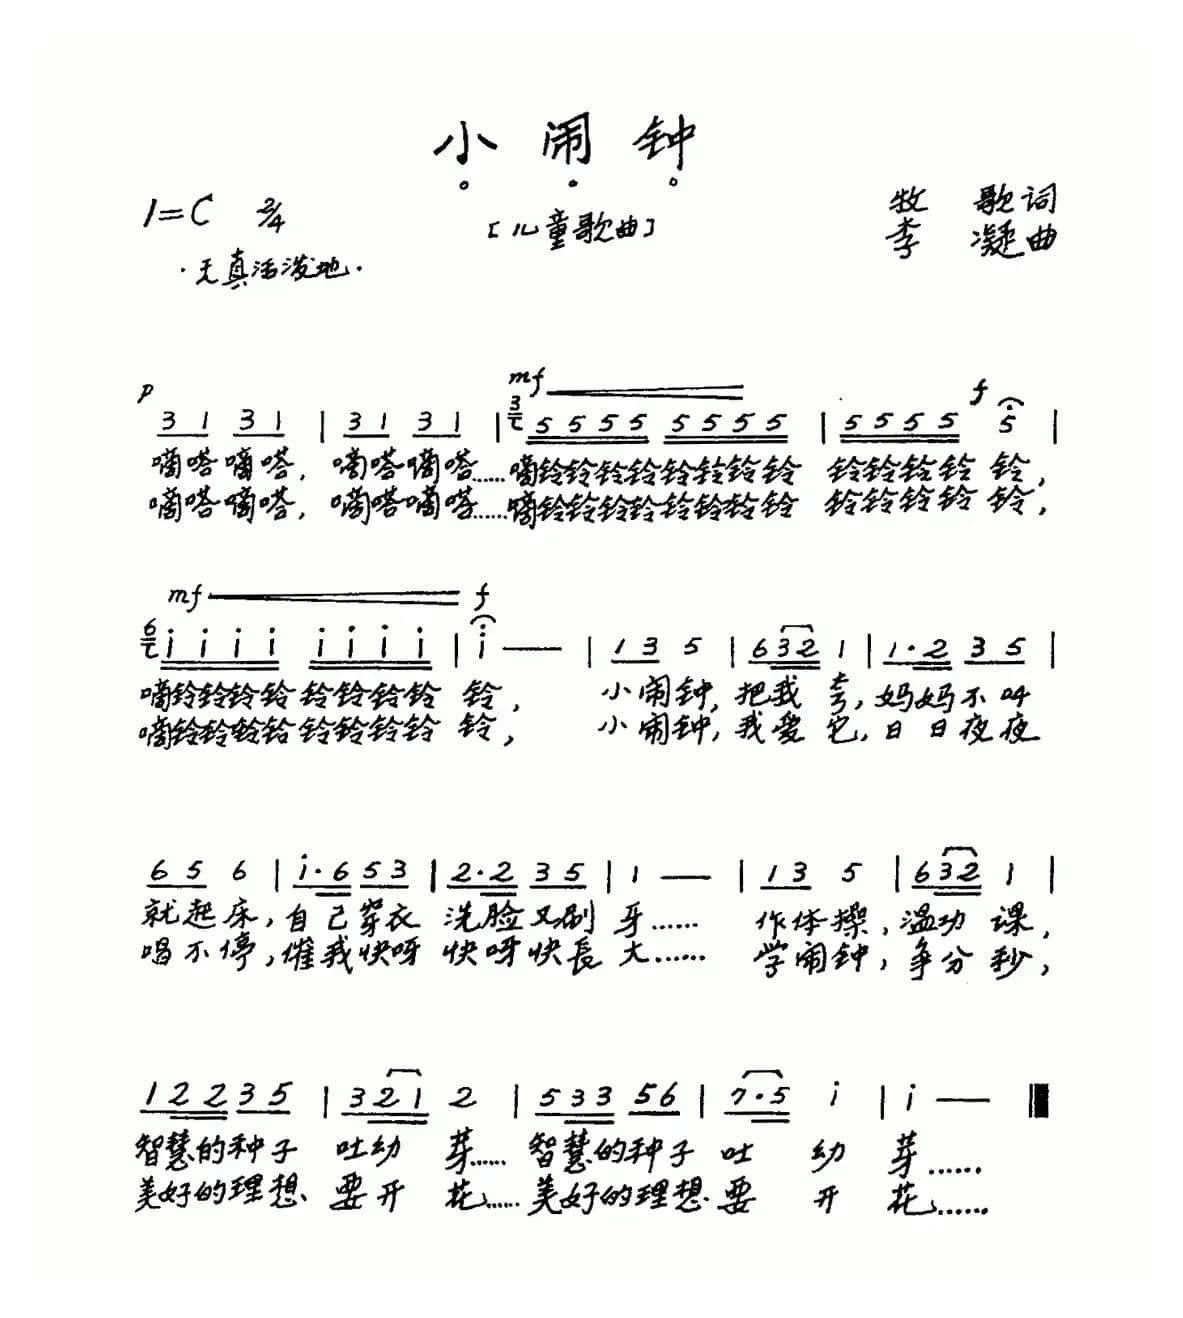 小闹钟
1=C 2/4
[儿童歌曲]
牧 歌词
李 凝曲
·天真活泼地·
p mf f
3 1 3 1 | 3 1 3 1 | 3 5 5 5 5 5 5 5 5 | 5 5 5 5 5 |
嘀嗒嘀嗒，嘀嗒嘀嗒……嘀铃铃铃铃铃铃铃铃 铃铃铃铃 铃，
嘀嗒嘀嗒，嘀嗒嘀嗒……嘀铃铃铃铃铃铃铃铃 铃铃铃铃 铃，
mf f
6 i i i i i i i i | i — | 1 3 5 | 6 3 2 1 | 1·2 3 5 |
嘀铃铃铃铃 铃铃铃铃 铃， 小闹钟，把我 夸，妈妈不叫
嘀铃铃铃铃 铃铃铃铃 铃， 小闹钟，我爱 它，日日夜夜
6 5 6 | i·6 5 3 | 2·2 3 5 | 1 — | 1 3 5 | 6 3 2 1 |
就起床，自己穿衣 洗脸又刷 牙…… 作体操，温功 课，
唱不停，催我快呀 快呀快長 大…… 学闹钟，争分 秒，
1 2 2 3 5 | 3 2 1 2 | 5 3 3 5 6 | 7·5 i | i — ‖
智慧的种子 吐幼 芽…… 智慧的种子 吐 幼 芽……
美好的理想 要开 花…… 美好的理想 要 开 花……